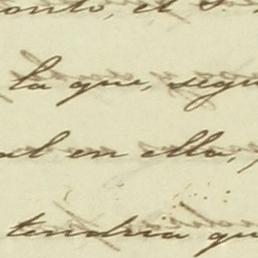 el
la que, segu
al en ella,
tendria qu